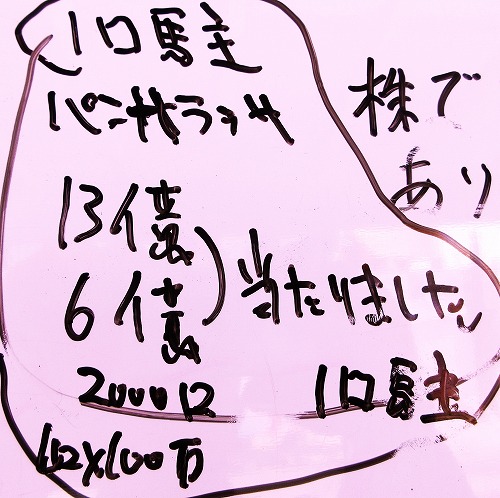 1口馬主
パンサラッサ
株で
あり
13億
6億
当たりました
2000口
1口馬主
1口×100万